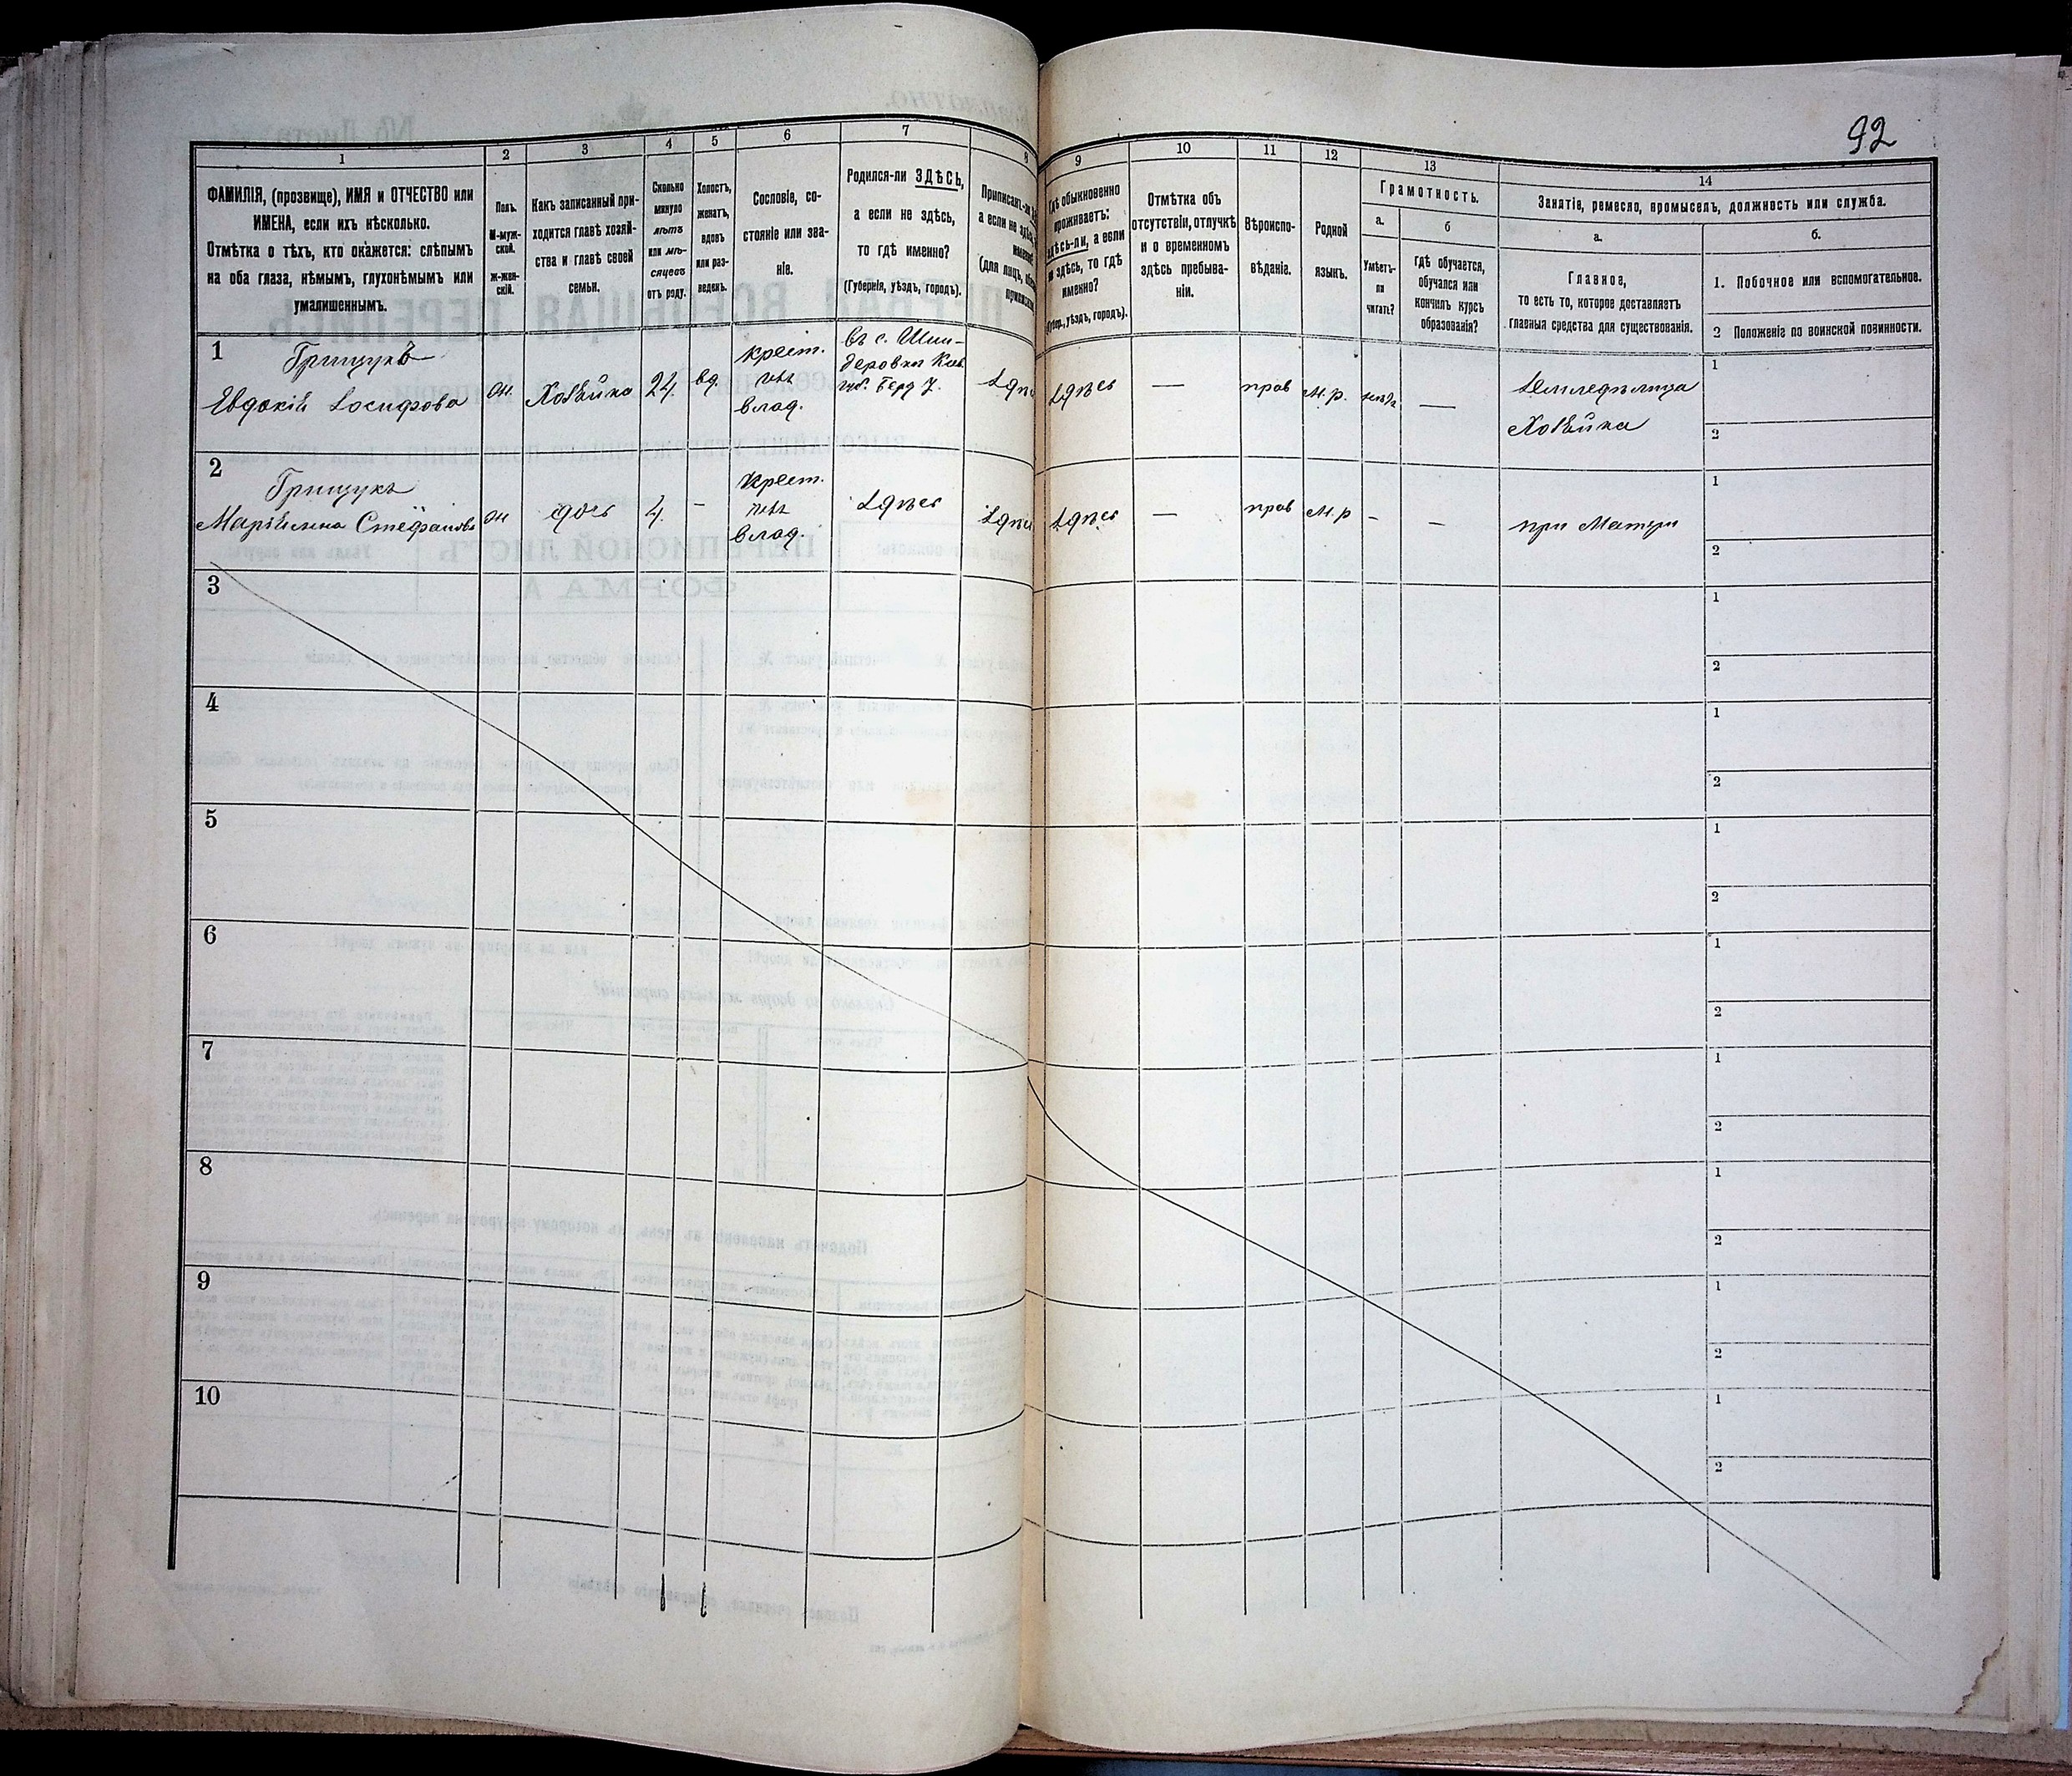 92
1
2
3
4
5
6
7
8
9
10
11
12
13
14
ФАМИЛІЯ, (прозвище), ИМЯ и ОТЧЕСТВО или
ИМЕНА, если ихъ нѣсколько.
Отмѣтка о тѣхъ, кто окажется: слѣпымъ
на оба глаза, нѣмымъ, глухонѣмымъ или
умалишеннымъ.
Полъ.
М-муж-
ской.
Ж-жен-
скій.
Какъ записанный при-
ходится главѣ хозяй-
ства и главѣ своей
семьи.
Сколько
минуло
лѣтъ
или мѣ-
сяцевъ
отъ роду.
Холостъ,
женатъ,
вдовъ
или раз-
веденъ.
Сословіе, со-
стояніе или зва-
ніе.
Родился-ли ЗДѢСЬ,
а если не здѣсь,
то гдѣ именно?
(Губернія, уѣздъ, городъ).
Приписанъ-ли
а если не здѣсь,
(для лицъ,
Гдѣ обыкновенно
проживаетъ:
здѣсь-ли, а если
не здѣсь, то гдѣ
именно?
(Губер., уѣздъ, городъ).
Отмѣтка объ
отсутствіи, отлучкѣ
и о временномъ
здѣсь пребыва-
ніи.
Вѣроиспо-
вѣданіе.
Родной
языкъ.
Грамотность.
а.
б
Умѣетъ-
ли
читать?
гдѣ обучается,
обучался или
кончилъ курсъ
образованія?
Занятіе, ремесло, промыселъ, должность или служба.
а.
б.
Главное,
то есть то, которое доставляетъ
главныя средства для существованія.
1. Побочное или вспомогательное.
2 Положеніе по воинской повинности.
1
Грищукъ
Евдокій Іосифова
ж.
Хозяйка
24
вд.
крест.
изъ
влад.
въ с. Шин-
деровки Кіев.
губ. Берд у.
здѣсь
—
прав
м.р.
нѣтъ
—
Земледѣлица
Хозяйка
1
2
2
Грищукъ
Марійлина Стефанова
ж
дочь
4
-
Крест.
изъ
влад.
здѣсь
здѣсь
—
прав
м.р
-
-
при Матери
1
2
3
1
2
4
1
2
5
1
2
6
1
2
7
1
2
8
1
2
9
1
2
10
1
2